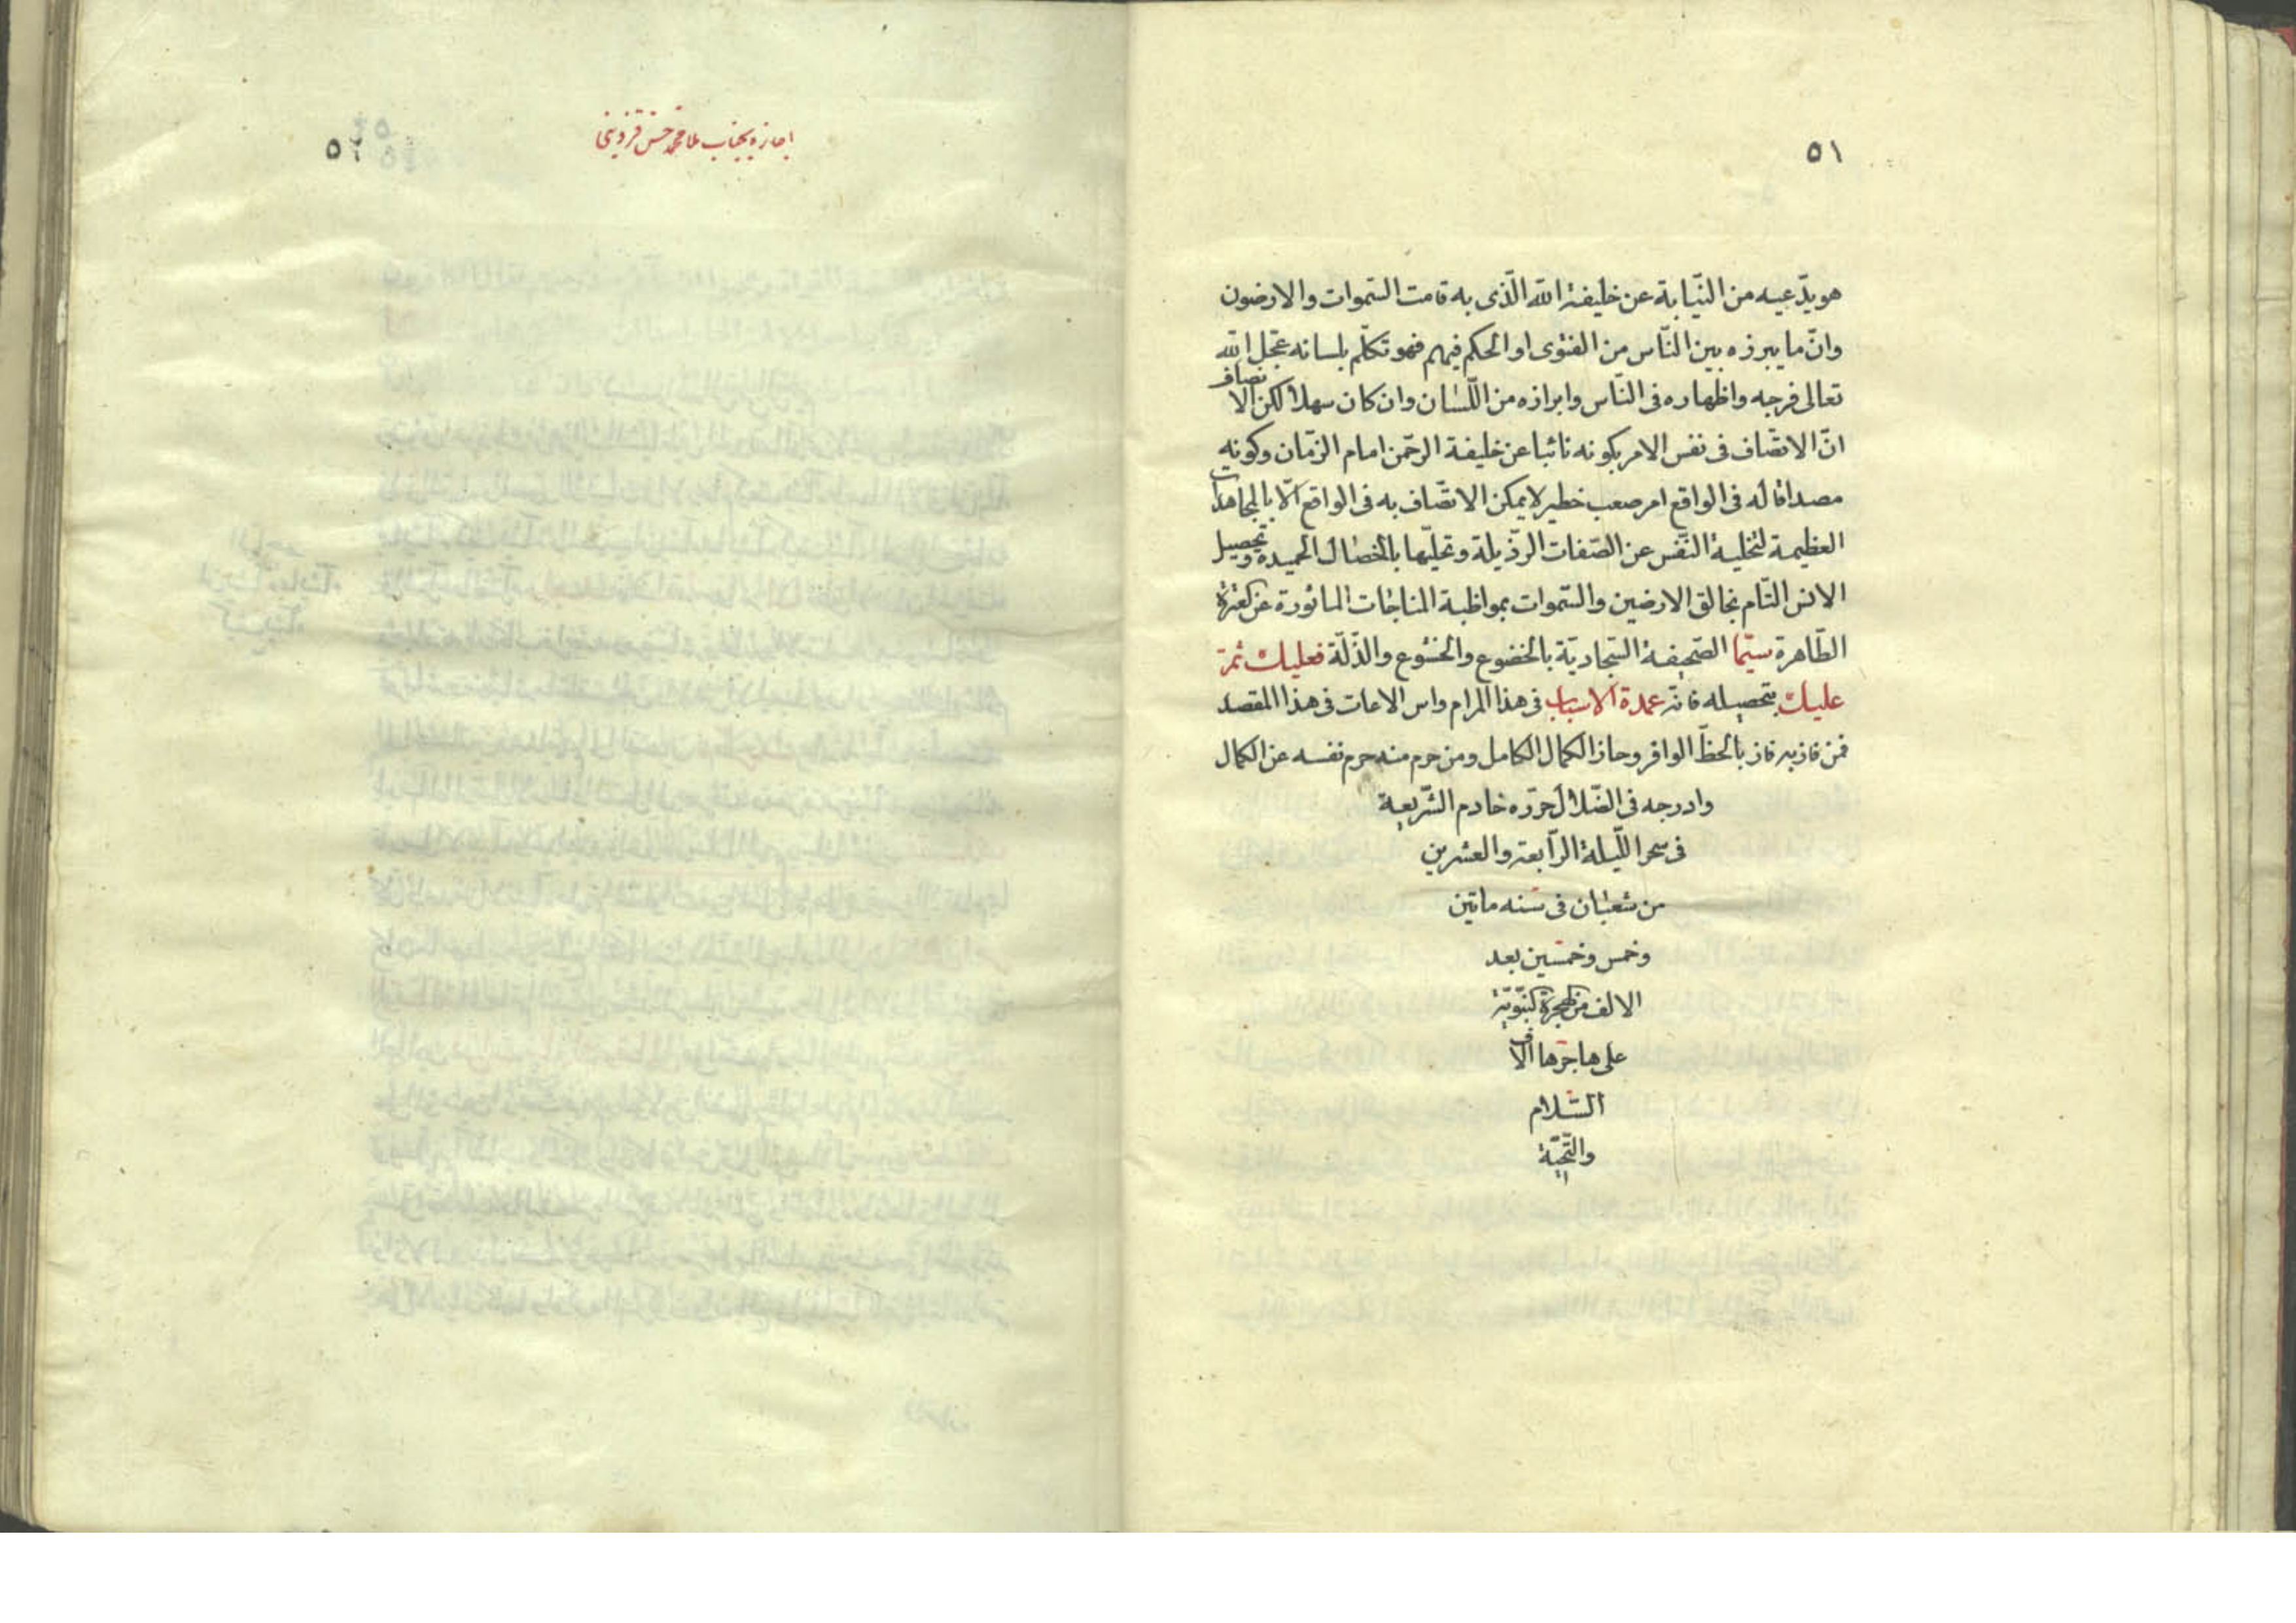 ٥١
هو يدّعيه من النّيابة عن خليفة الله الّذى به قامت السّموات والارضون
وانّ ما يبرزه بين النّاس من الفتوى او الحكم فيهم فهو تكلّم بلسانه عجّل الله
تعالى فرجه واظهاره فى النّاس وابرازه من اللّسان وان كان سهلا لكن الاتصاف
انّ الاتصّاف فى نفس الامر بكونه نائبا عن خليفة الرحّمن امام الزمّان وكونه
مصداقا له فى الواقع امر صعب خطير لا يمكن الاتصّاف به فى الواقع الّا بالمجاهدات
العظيمة لتخلية النّفس عن الصّفات الرذّيلة وتحليّها بالخصال الحميدة وتحصيل
الانس التّام بخالق الارضين والسّموات بمواظبة المناجات الماثورة عن العترة
الطّاهرة سيّما الصّحيفة السّجاديّة بالخضوع والخشوع والذّلّة فعليك ثمّ
عليك بتحصيله فانّه عمدة الاسباب فى هذا المرام واس الاعات فى هذا المقصد
فمن فاز به فاز بالحظّ الوافر وحاز الكمال الكامل ومن حرم منه حرم نفسه عن الكمال
وادرجه فى الضّلال حرّره خادم الشّريعة
فى سحر اللّيلة الرّابعة والعشرين
من شعبان فى سنه مأتين
وخمس وخمسين بعد
الالف من الهجرة النّبّويّة
على هاجرها الاف
السّلام
والتّحيّة
اجازه بجناب ملا محمد حسن قزوينى
٥٢